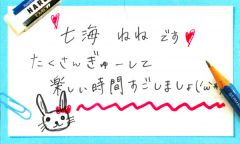 七海 ねね です
たくさんぎゅーして
楽しい時間すごしましょ('ω'